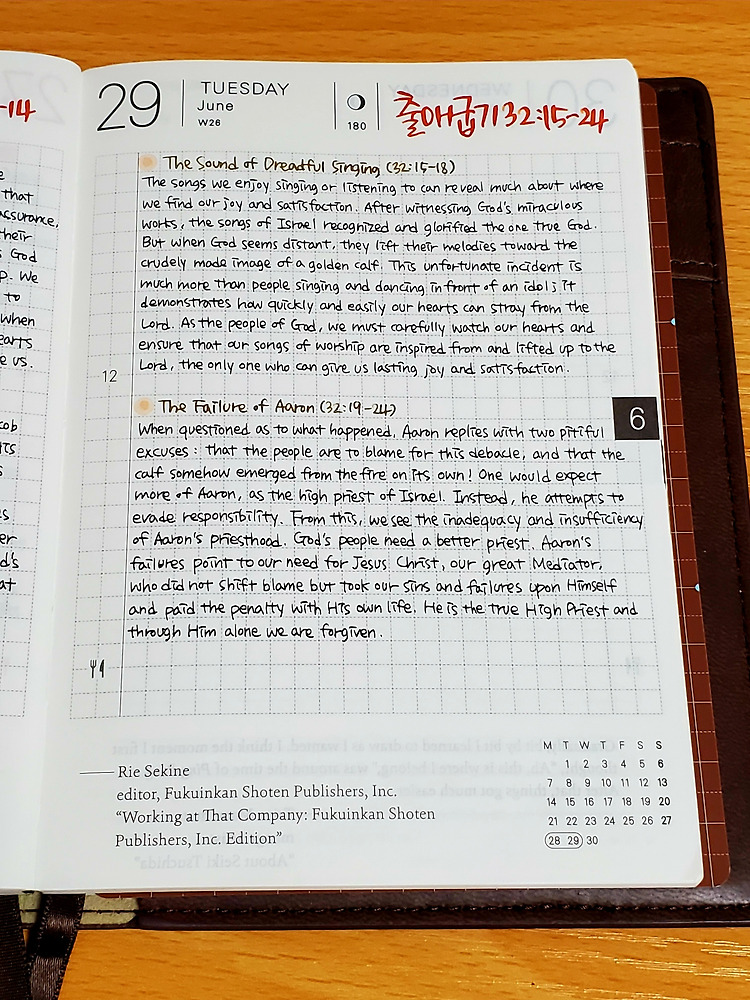 -14
29
TUESDAY
June
W26
180
출애굽기 32:15-24
The Sound of Dreadful Singing (32:15-18)
The songs we enjoy singing or listening to can reveal much about where
we find our joy and satisfaction. After witnessing God's miraculous
works, the songs of Israel recognized and glorified the one true God.
But when God seems distant, they lift their melodies toward the
crudely made image of a golden calf. This unfortunate incident is
much more than people singing and dancing in front of an idol; it
demonstrates how quickly and easily our hearts can stray from the
Lord. As the people of God, we must carefully watch our hearts and
ensure that our songs of worship are inspired from and lifted up to the
Lord, the only one who can give us lasting joy and satisfaction.
12
The Failure of Aaron (32:19-24)
6
When questioned as to what happened, Aaron replies with two pitiful
excuses: that the people are to blame for this debacle, and that the
calf somehow emerged from the fire on its own! One would expect
more of Aaron, as the high priest of Israel. Instead, he attempts to
evade responsibility. From this, we see the inadequacy and insufficiency
of Aaron's priesthood. God's people need a better priest. Aaron's
failures point to our need for Jesus Christ, our great Mediator,
who did not shift blame but took our sins and failures upon Himself
and paid the penalty with His own life. He is the true High Priest and
through Him alone we are forgiven.
Rie Sekine
editor, Fukuinkan Shoten Publishers, Inc.
"Working at That Company: Fukuinkan Shoten
Publishers, Inc. Edition"
M T W T F S S
1 2 3 4 5 6
7 8 9 10 11 12 13
14 15 16 17 18 19 20
21 22 23 24 25 26 27
28 29 30
that
assurance,
their
God
We
to
when
earts
e us.
cob